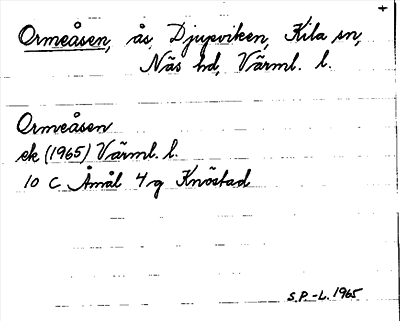 +
Ormeåsen, ås, Djupviken, Kila sn,
Näs hd, Värml. l.
Ormeåsen
ek (1965) Värml. l.
10 C Åmål 4g Knöstad
S.P.-L. 1965